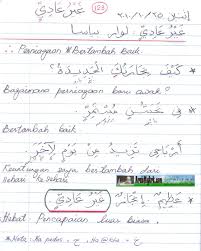 اثنين ٢٥/١٠/٢٠١٠ غَيْرُ عَادِيٍّ 123
غَيْرُ عَادِيٍّ : لوار بياسا
∴ Perniagaan Bertambah Baik.
كَيْفَ تِجَارَتُكَ الْجَدِيْدَةُ؟
Bagaimana perniagaan baru awak?
فِي تَحَسُّنٍ
Bertambah baik
أَرْبَاحِي تَزِيْدُ مِنْ يَوْمٍ لِآخَرَ
Keuntungan saya bertambah dari
sehari ke sehari
عَظِيْمٌ، إِنْجَازٌ غَيْرُ عَادِيٍّ
Hebat. Pencapaian luar biasa.